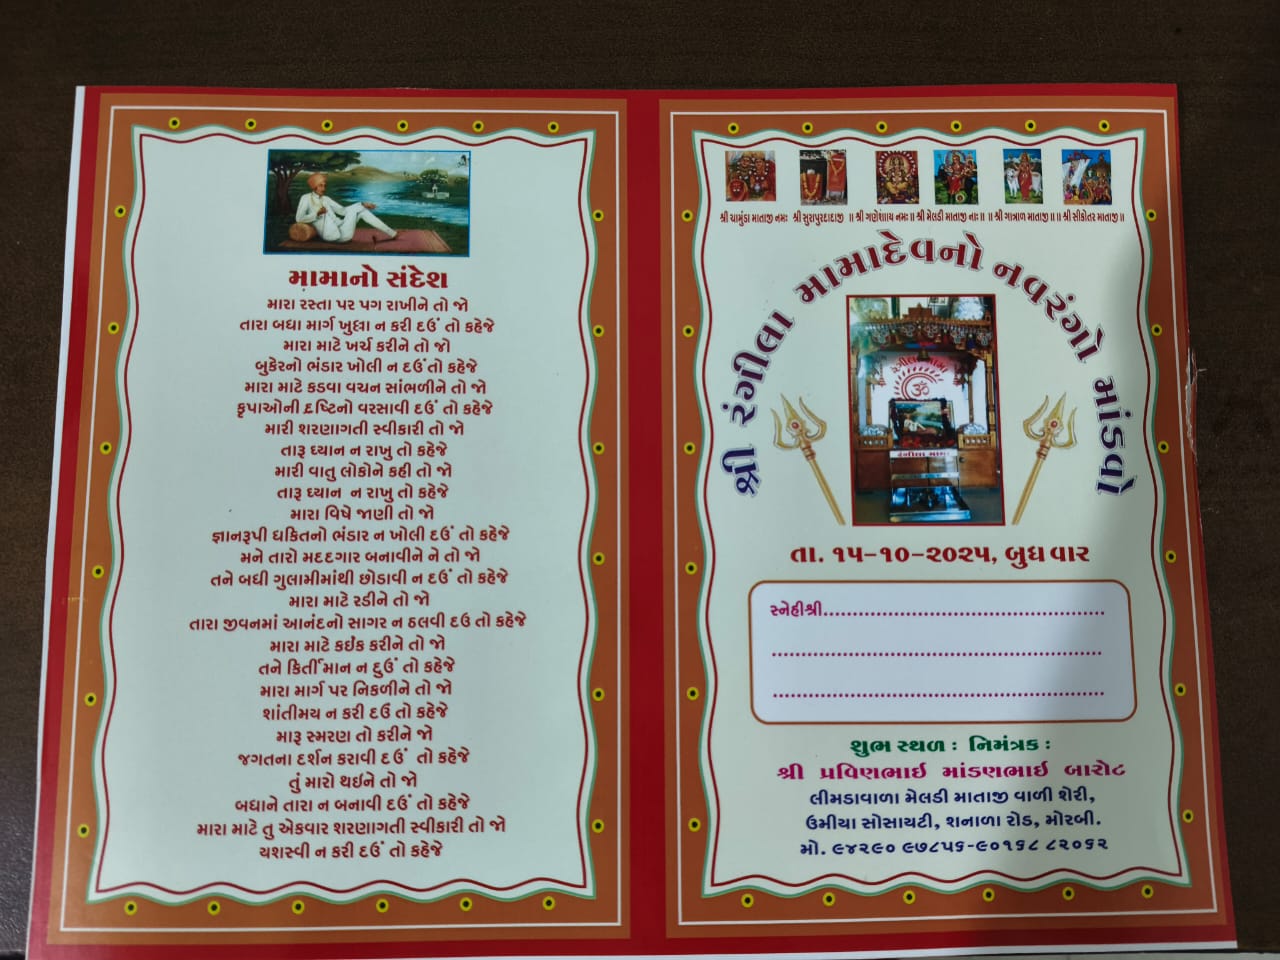 મામાનો સંદેશ
મારા રસ્તા પર પગ રાખીને તો જો
તારા બધા માર્ગ ખુલ્લા ન કરી દઉં તો કહેજે
મારા માટે ખર્ચ કરીને તો જો
બુકેરનો ભંડાર ખોલી ન દઉં તો કહેજે
મારા માટે કડવા વચન સાંભળીને તો જો
કૃપાઓની દ્રષ્ટિનો વરસાવી દઉં તો કહેજે
મારી શરણાગતી સ્વીકારી તો જો
તારૂ ધ્યાન ન રાખુ તો કહેજે
મારી વાતુ લોકોને કહી તો જો
તારૂ ધ્યાન ન રાખુ તો કહેજે
મારા વિષે જાણી તો જો
જ્ઞાનરૂપી ધકિતનો ભંડાર ન ખોલી દઉં તો કહેજે
મને તારો મદદગાર બનાવીને ને તો જો
તને બધી ગુલામીમાંથી છોડાવી ન દઉં તો કહેજે
મારા માટે રડીને તો જો
તારા જીવનમાં આનંદનો સાગર ન ઠલવી દઉ તો કહેજે
મારા માટે કઈંક કરીને તો જો
તને કિર્તીમાન ન દુઉં તો કહેજે
મારા માર્ગ પર નિકળીને તો જો
શાંતીમય ન કરી દઉં તો કહેજે
મારૂ સ્મરણ તો કરીને જો
જગતના દર્શન કરાવી દઉં તો કહેજે
તું મારો થઇને તો જો
બધાને તારા ન બનાવી દઉં તો કહેજે
મારા માટે તુ એકવાર શરણાગતી સ્વીકારી તો જો
યશસ્વી ન કરી દઉં તો કહેજે
શ્રી ચામુંડા માતાજી નમઃ શ્રી સુરાપુરદાદાજી ॥ શ્રી ગણેશાય નમઃ॥ શ્રી મેલડી માતાજી નાઃ॥ ॥ શ્રી ગાત્રાળ માતાજી॥ ॥ શ્રી સીકોતર માતાજી॥
શ્રી રંગીલા મામાદેવનો નવરંગો માંડવો
રંગીલા મામા
ॐ
રંગીલા મામા
તા. ૧૫-૧૦-૨૦૨૫, બુધવાર
સ્નેહીશ્રી
શુભ સ્થળ : નિમંત્રક :
શ્રી પ્રવિણભાઈ માંડણભાઈ બારોટ
લીમડાવાળા મેલડી માતાજી વાળી શેરી,
ઉમીયા સોસાયટી, શનાળા રોડ, મોરબી.
મો. ૯૪૨૯૦ ૯૭૮૫૬-૯૦૧૬૮ ૮૨૦૬૨